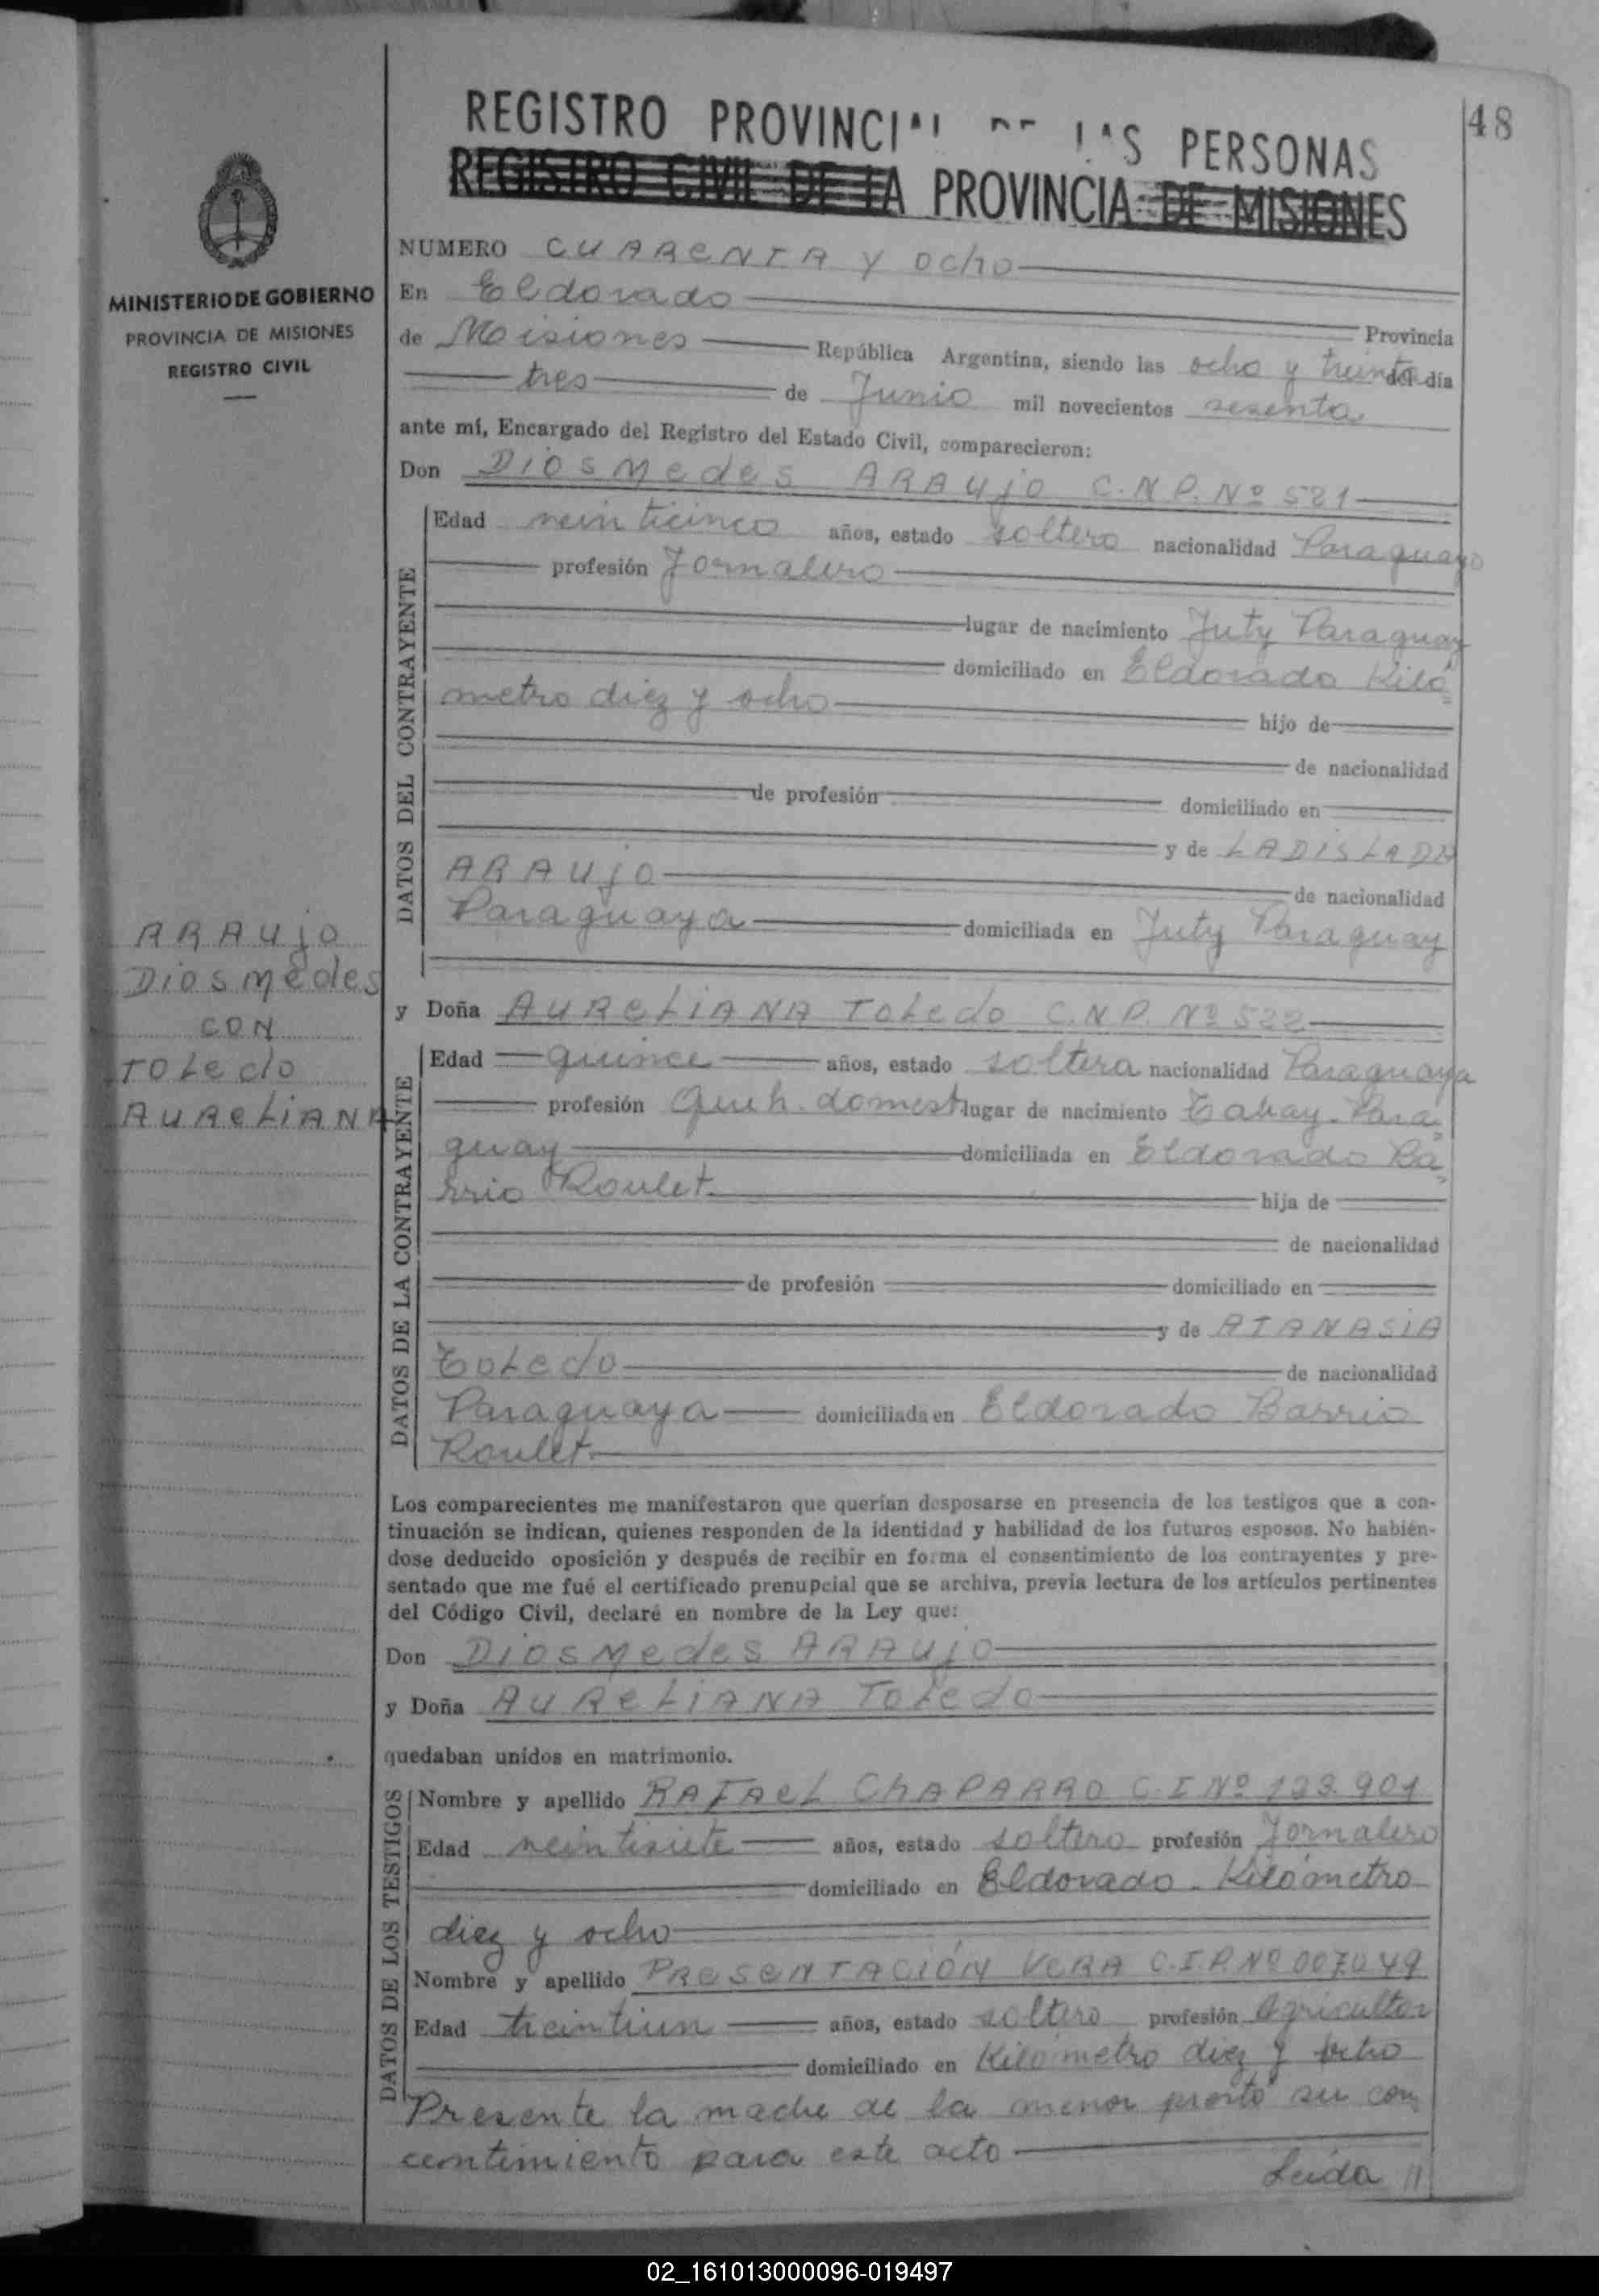 48
REGISTRO PROVINCIAL DE LAS PERSONAS
REGISTRO CIVIL DE LA PROVINCIA DE MISIONES
MINISTERIO DE GOBIERNO
PROVINCIA DE MISIONES
REGISTRO CIVIL
NUMERO CUARENTA Y OCHO
En Eldorado Provincia
de Misiones República Argentina, siendo las ocho y treinta del día
tres de Junio mil novecientos sesenta
ante mí, Encargado del Registro del Estado Civil, comparecieron:
Don Diosmedes ARAUJO C.N.P. Nº 521
DATOS DEL CONTRAYENTE
Edad veinticinco años, estado soltero nacionalidad Paraguayo
profesión Jornalero
lugar de nacimiento Juty Paraguay
domiciliado en Eldorado Kiló=
metro diez y ocho hijo de
de nacionalidad
de profesión domiciliado en
y de LADISLADA
ARAUJO de nacionalidad
Paraguaya domiciliada en Juty Paraguay
ARAUJO
Diosmedes
CON
TOLEDO
AURELIANA
y Doña AURELIANA TOLEDO C.N.P. Nº 522
DATOS DE LA CONTRAYENTE
Edad quince años, estado soltera nacionalidad Paraguaya
profesión Queh. domest lugar de nacimiento Tabay-Para=
guay domiciliada en Eldorado Ba=
rrio Roulet. hija de
de nacionalidad
de profesión domiciliado en
y de ATANASIA
TOLEDO de nacionalidad
Paraguaya domiciliada en Eldorado Barrio
Roulet.
Los comparecientes me manifestaron que querían desposarse en presencia de los testigos que a con-
tinuación se indican, quienes responden de la identidad y habilidad de los futuros esposos. No habién-
dose deducido oposición y después de recibir en forma el consentimiento de los contrayentes y pre-
sentado que me fué el certificado prenupcial que se archiva, previa lectura de los artículos pertinentes
del Código Civil, declaré en nombre de la Ley que:
Don Diosmedes ARAUJO
y Doña AURELIANA TOLEDO
quedaban unidos en matrimonio.
DATOS DE LOS TESTIGOS
Nombre y apellido RAFAEL CHAPARRO C.I Nº 123.901
Edad veintisiete años, estado soltero profesión Jornalero
domiciliado en Eldorado - Kilómetro
diez y ocho
Nombre y apellido PRESENTACIÓN VERA C.I.P. Nº 007.049
Edad treintiun años, estado soltero profesión Agricultor
domiciliado en Kilómetro diez y ocho
Presente la madre de la menor prestó su con
centimiento para este acto
Leida //
02_161013000096-019497